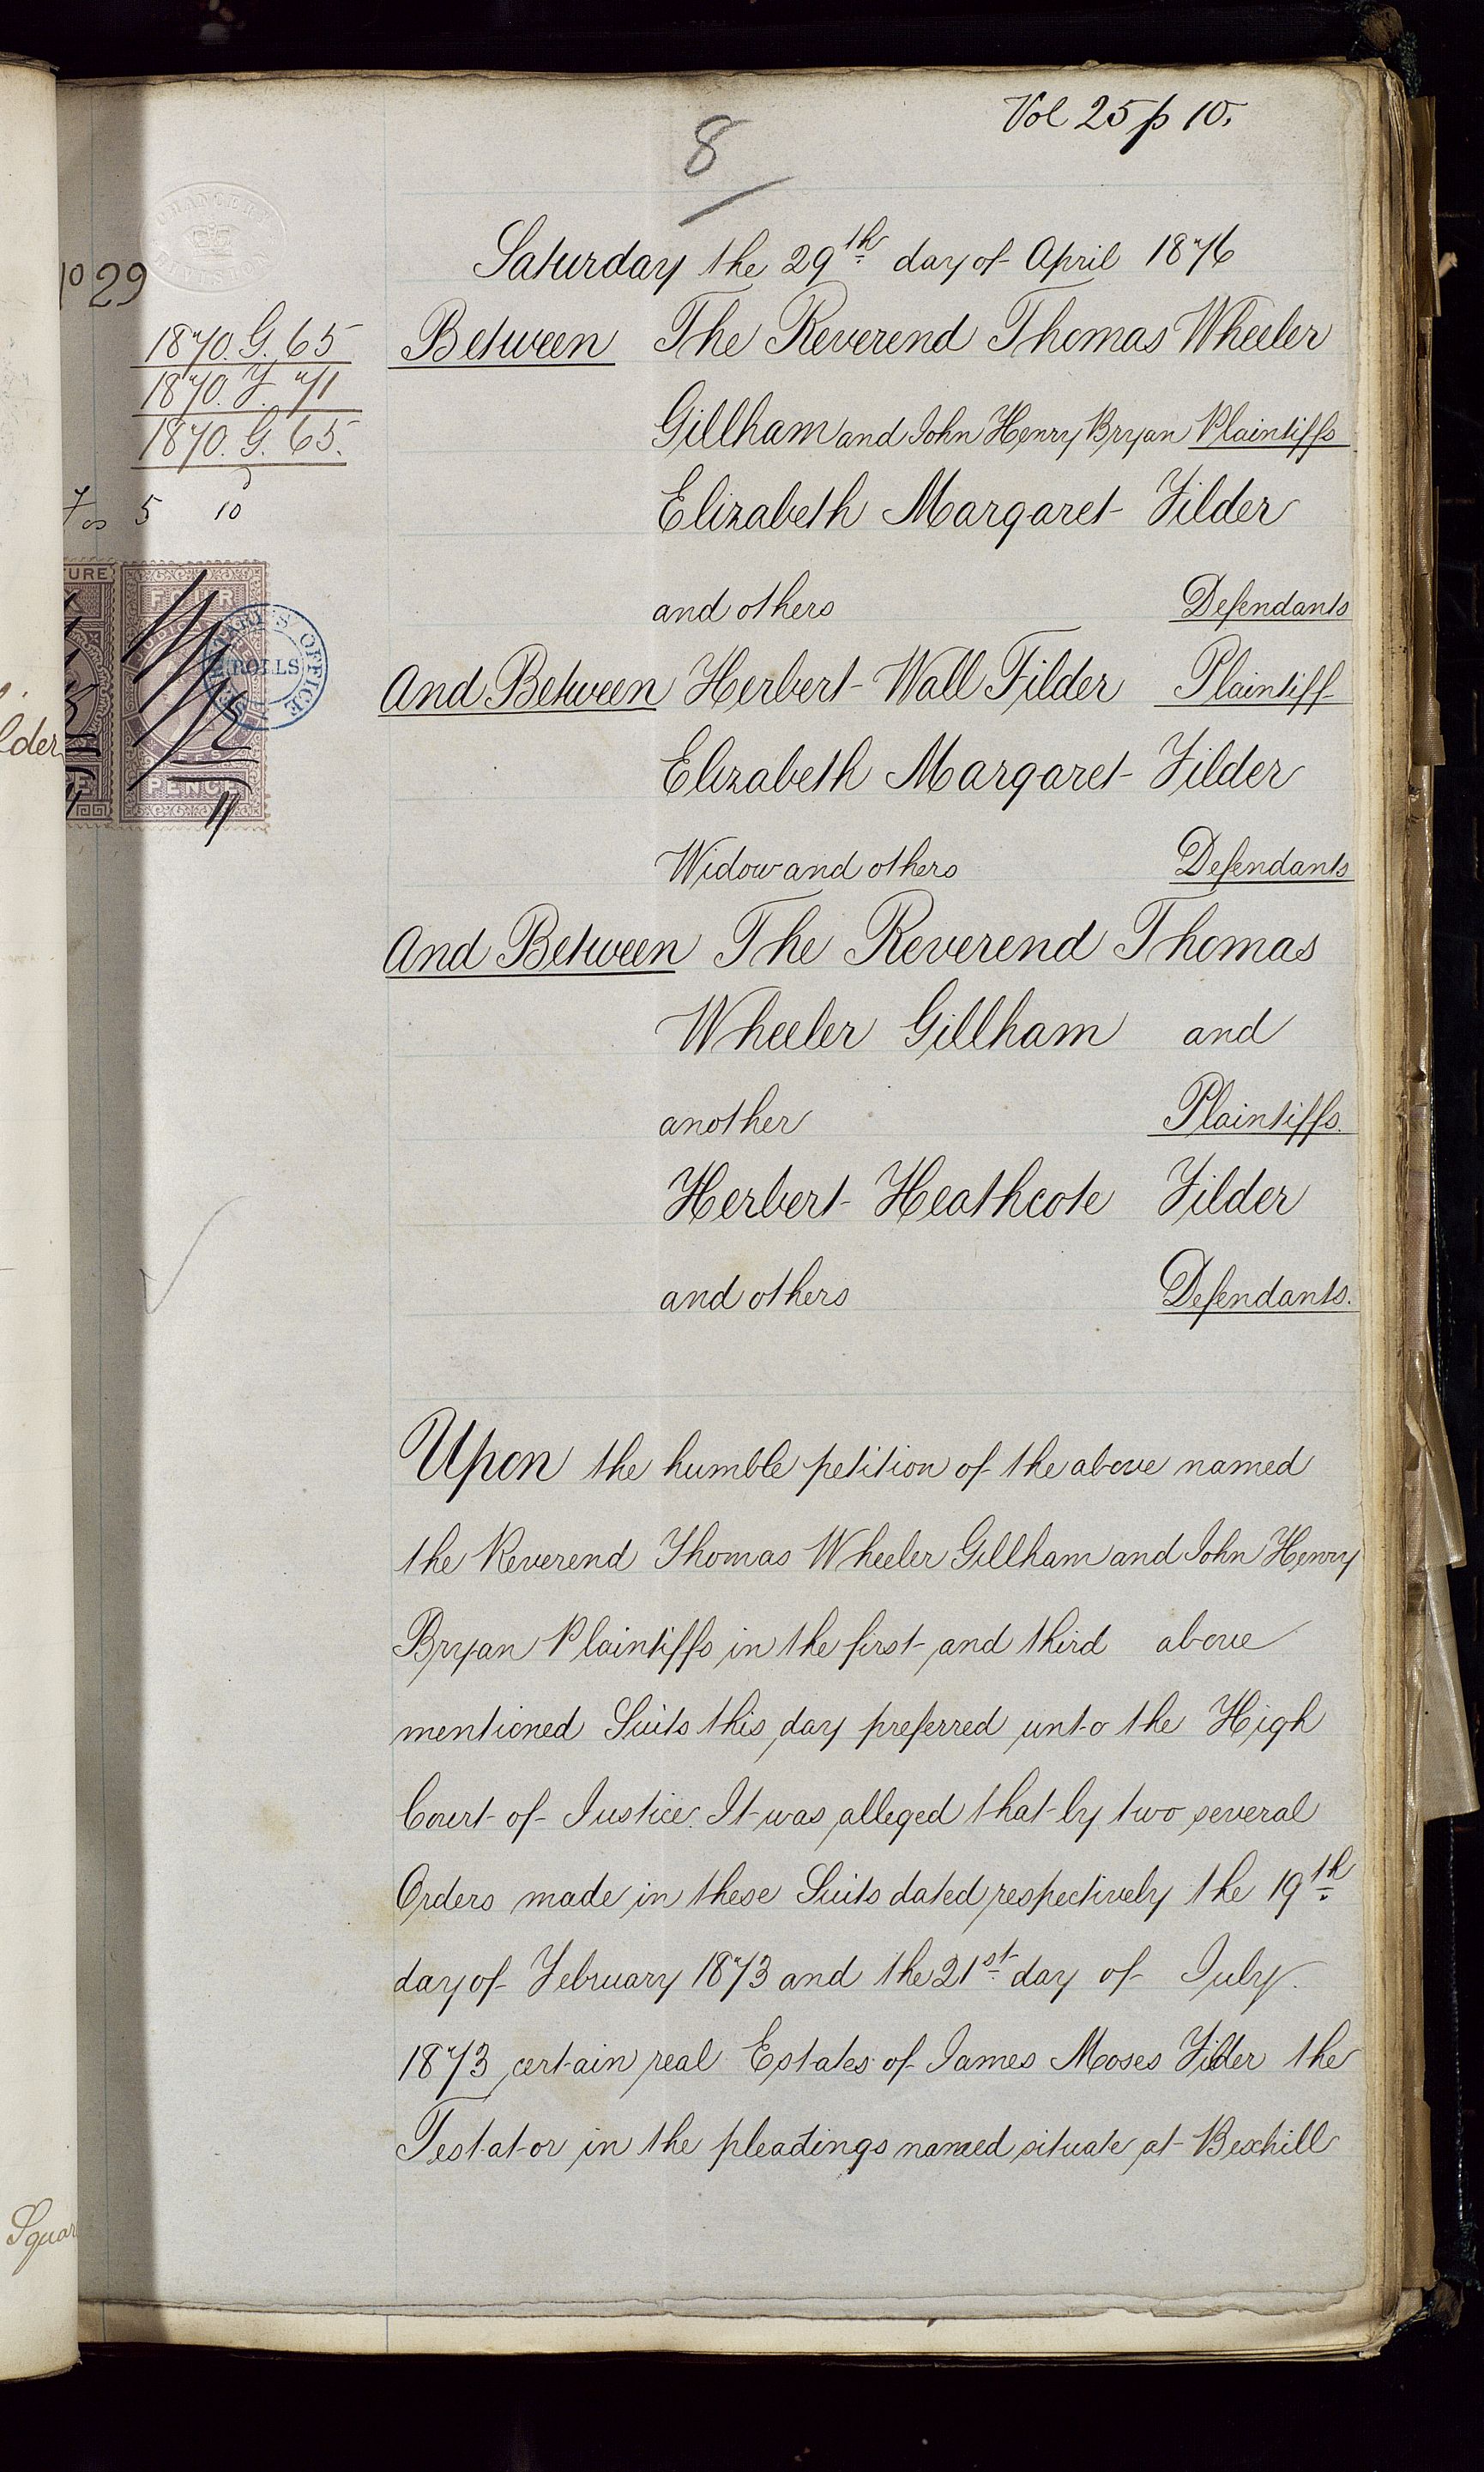 Vol 25 p 10.
8
CHANCERY DIVISION
29
Saturday the 29th day of April 1876
1870. G. 65
1870. F. 71
1870. G. 65.
5 10
Between The Reverend Thomas Wheeler
Gillham and John Henry Bryan Plaintiffs
Elizabeth Margaret Filder
and others Defendants
URE
FOUR
PENCE
OFFICE
ROLLS
lder
And Between Herbert Wall Filder Plaintiff
Elizabeth Margaret Filder
Widow and others Defendants
And Between The Reverend Thomas
Wheeler Gillham and
another Plaintiffs.
Herbert Heathcote Filder
and others Defendants.
Upon the humble petition of the above named
the Reverend Thomas Wheeler Gillham and John Henry
Bryan Plaintiffs in the first and third above
mentioned Suits this day preferred unto the High
Court of Justice. It was alleged that by two several
Orders made in these Suits dated respectively the 19th
day of February 1873 and the 21st day of July
1873 certain real Estates of James Moses Filder the
Testator in the pleadings named situate at Bexhill
Squar